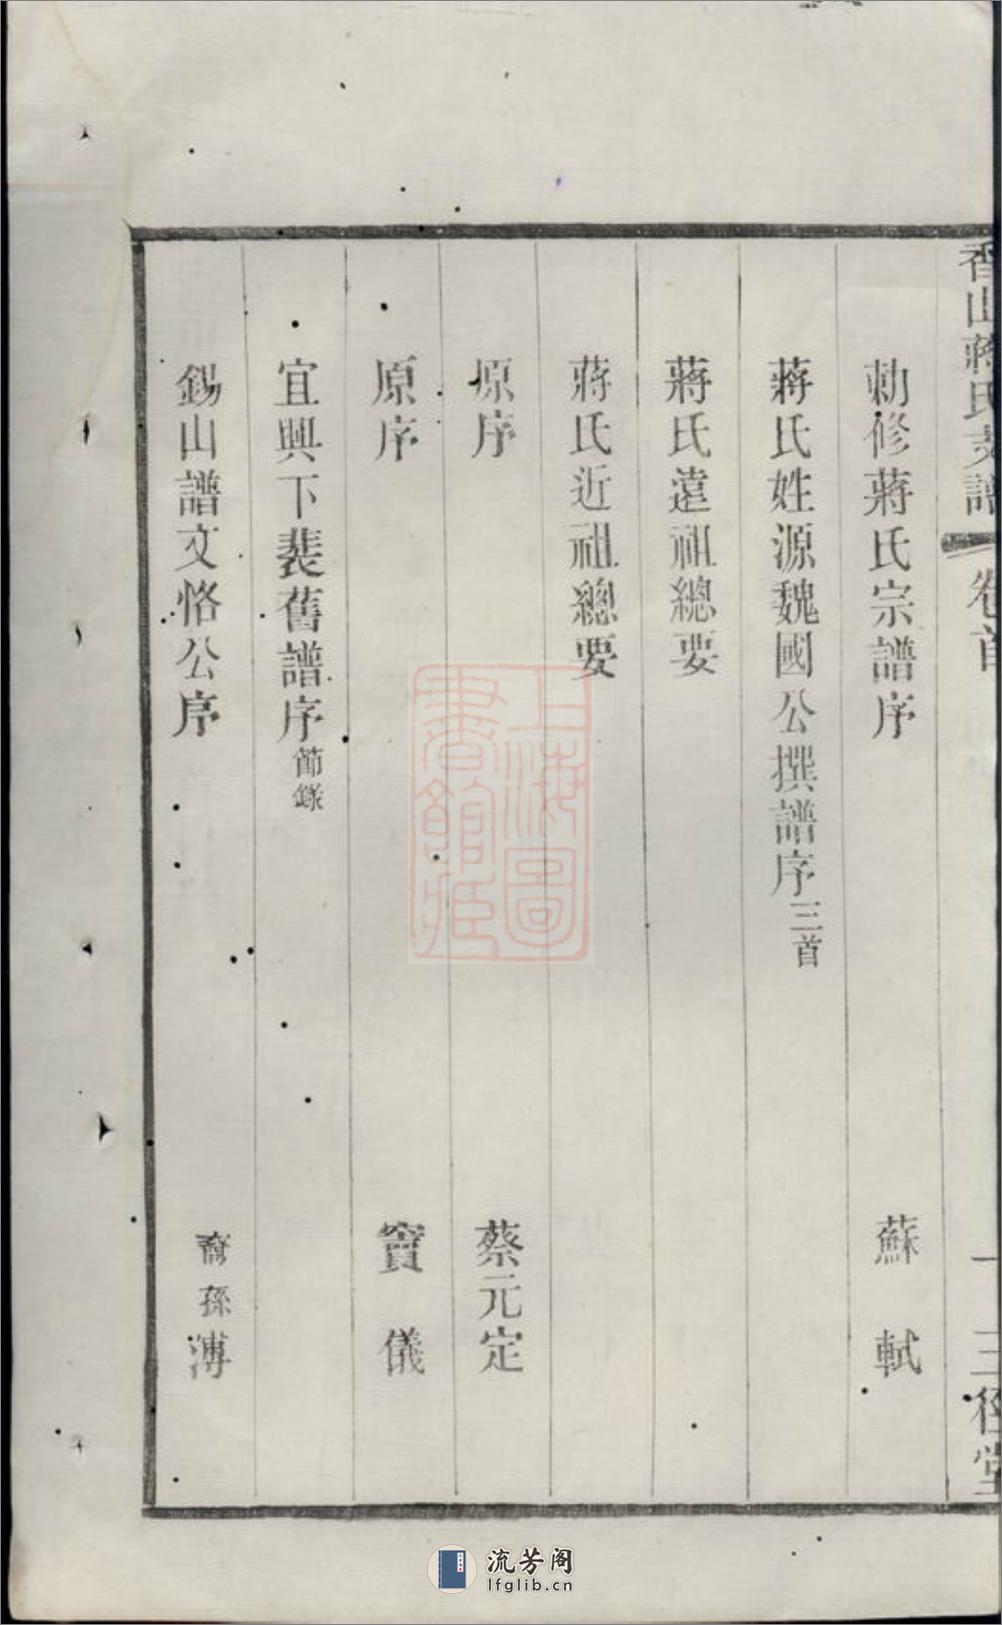 香山蔣氏支譜 卷首 一 三徑堂
勅修蔣氏宗譜序 蘇軾
蔣氏姓源魏國公撰譜序三首
蔣氏遠祖總要
蔣氏近祖總要
原序 蔡元定
原序 竇儀
宜興下裴舊譜序節錄
錫山譜文恪公序 裔孫溥
上海圖書館藏
流芳阁
lfglib.cn